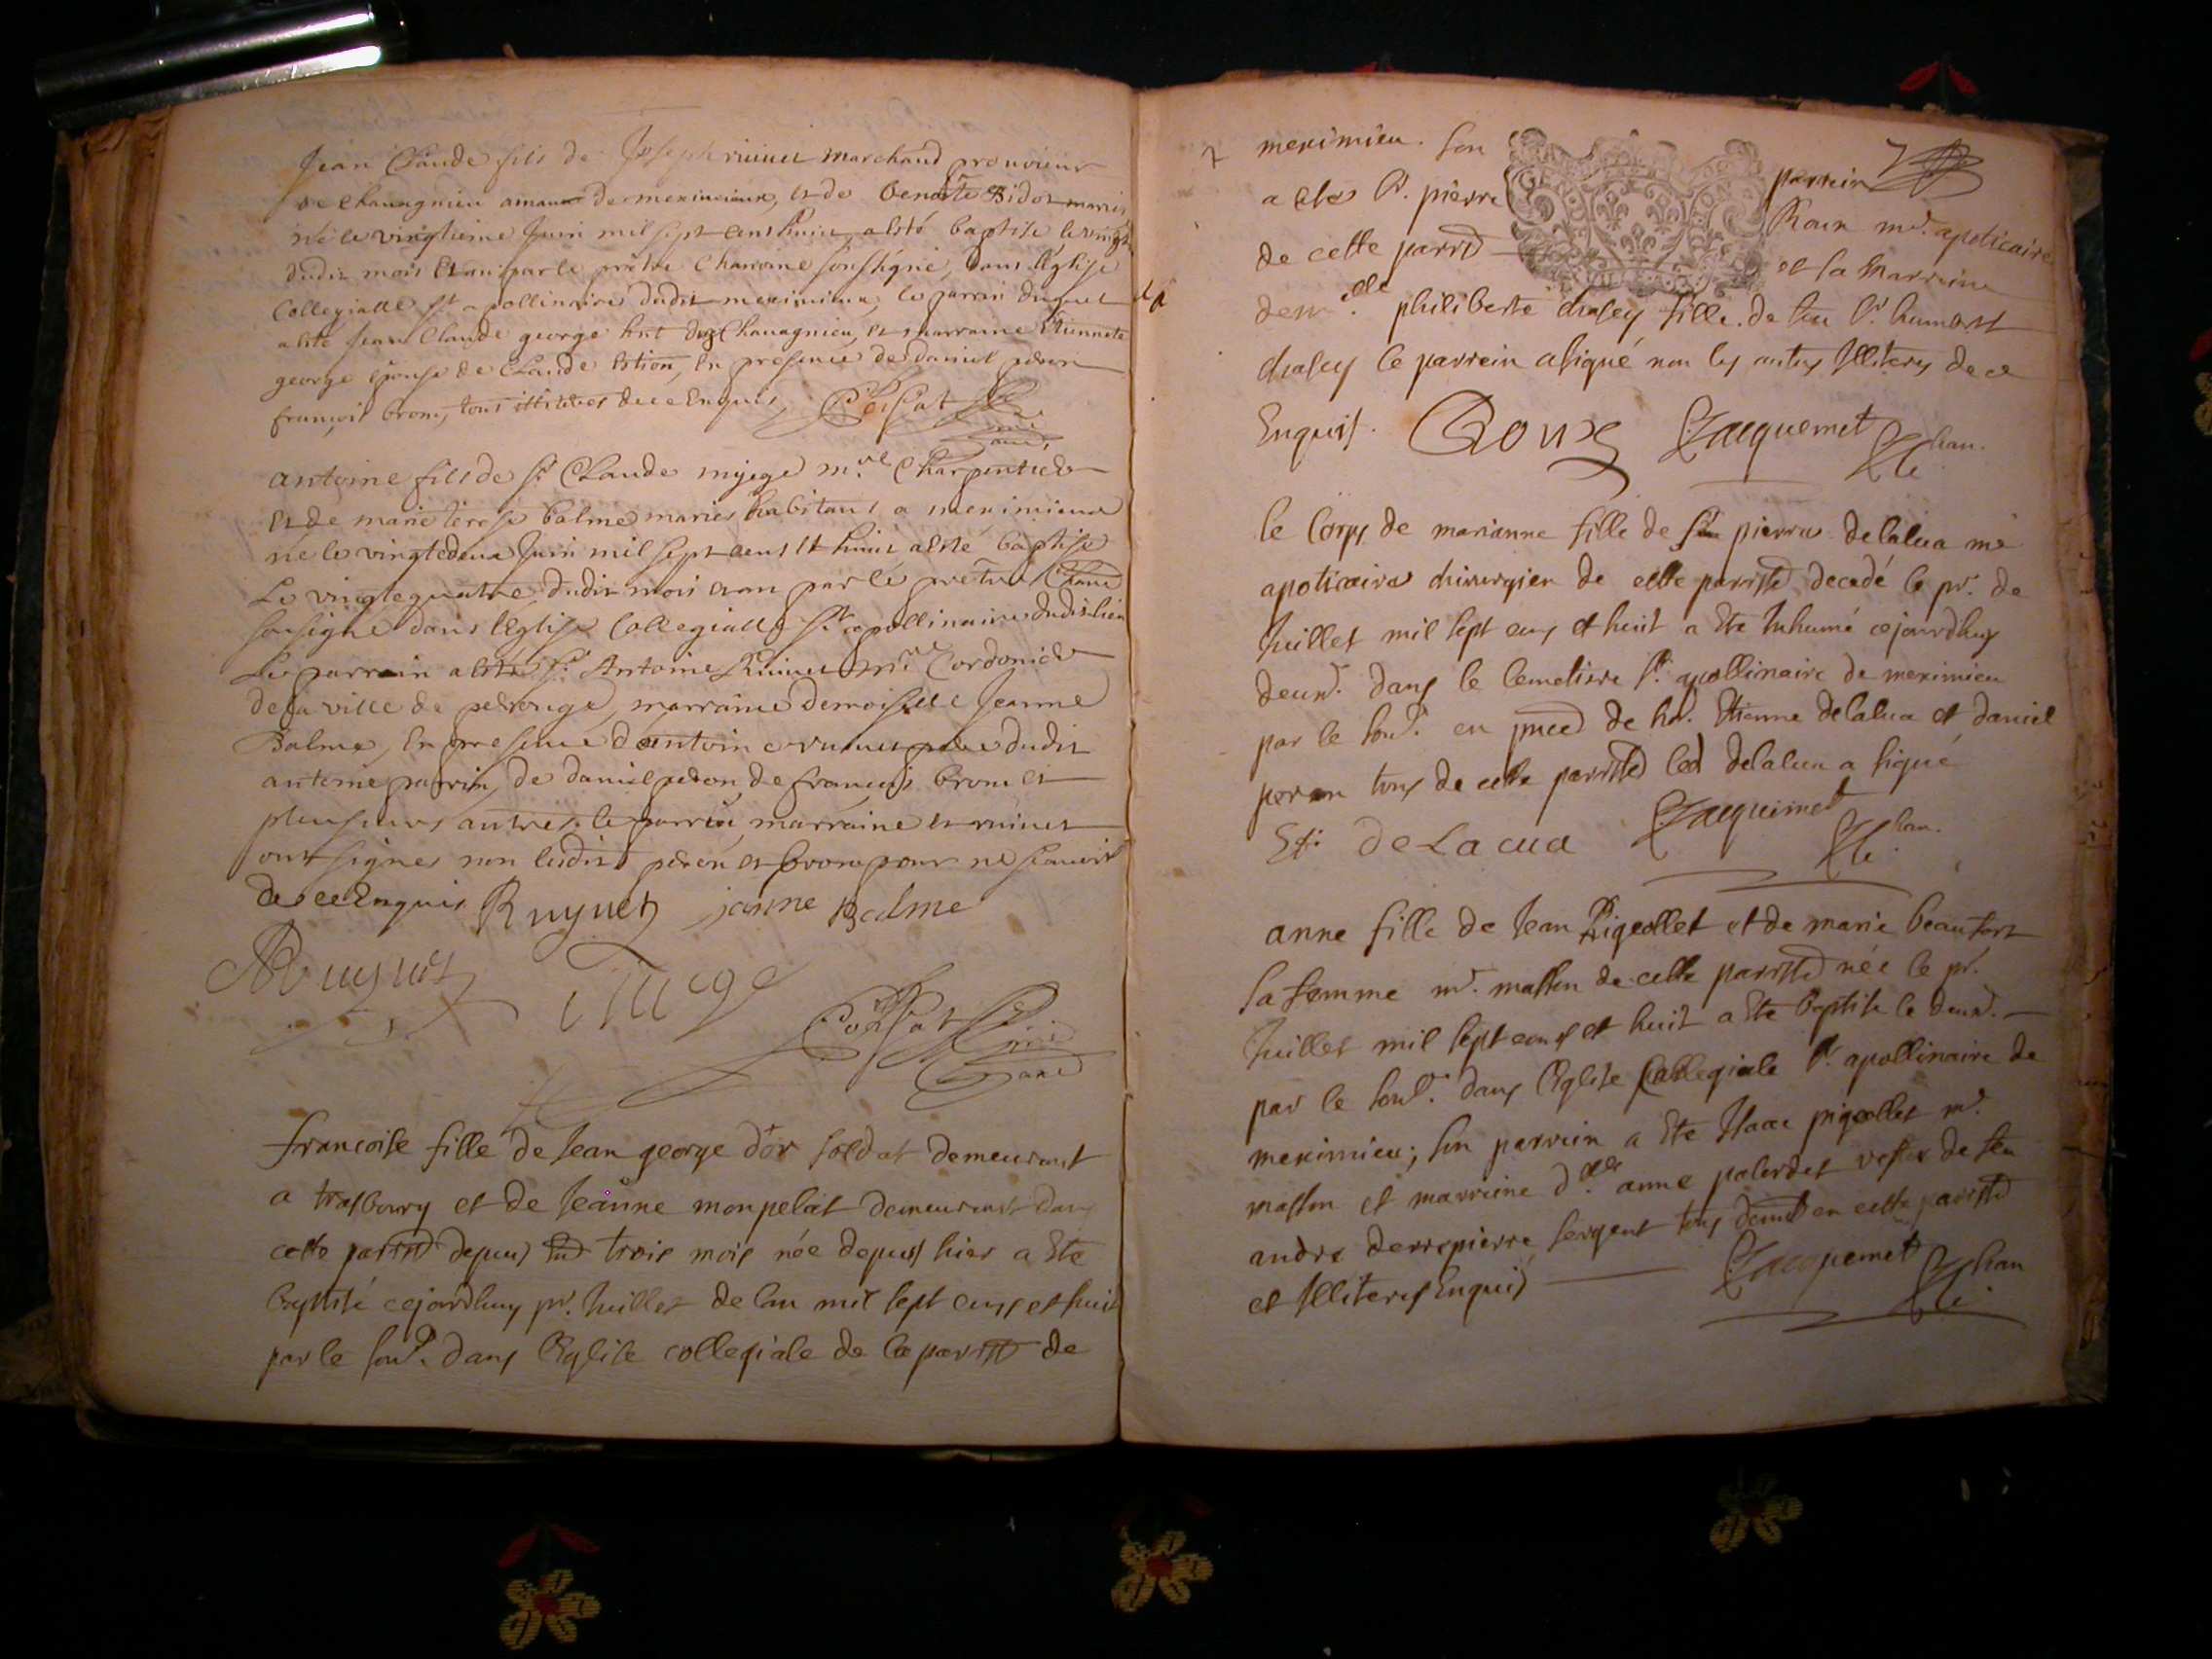 Jean Claude fils de Joseph ruinet marchand
de Chavagnieu de meximieux, et de benoite Bidot mariés
né le vingtieme Juin mil sept cens huict a esté baptisé le vingt
dudit mois et an par le prêtre Chanoine soussigné, dans l'Eglise
Collegialle St apollinaire dudit meximieux, le parrin
a esté Jean Claude george Chavagnieu, et marraine Etiennete
george épouse de Claude Estion, En presence de daniel peron
françois brom, tous illiteres de ce Enquis, Persat
antoine fils de sr Claude mijege mre Charpentier
Et de marie terese balme mariés habitans a meximieux
né le vingtedeux Juin mil sept cens et huict a esté baptisé
Le vingtequatre dudit mois et an par le pretre Chane
sousigné dans l'Eglise Collegialle St apollinaire dudit lieu
Le parrain a esté sr Antoine Ruinet mre Cordonier
de la ville de perouge, marraine demoiselle Jeanne
Balme, En presence d'antoine ruinet pere dudit
antoine parrin, de daniel peron de françois brom et
plusieurs autres. le parrin marraine et ruinet
ont signés non lesdits peron et brom pour ne scavoir
de ce Enquis Ruynet janne Balme
Ruynet Persat
françoise fille de Jean george d'or soldat demeurant
a trasbourg et de Jeanne monpelat demeurant dans
cette parisse depuis trois mois née depuis hier a Ete
baptisé cejourdhuy pr. Juillet de lan mil sept cens et huit
par le sousd. dans l'Eglise collegiale de la parisse de
meximieu. son parrein
a ete Sr. pierre Roux md. apoticaire
de cette parisse et la Marreine
demelle philiberte chasey fille de feu Sr. humbert
chasey le parrein a signé non les autres Illiteres de ce
Enquis. Roux Jacquemet Chan.
le Corps de marianne fille de pierre delalua me
apoticaire chirurgien de cette parisse decedé le pr. de
Juillet mil sept cens et huit a Ete Inhumé cejourdhuy
deuxe. dans le Cemetiere St. apollinaire de meximieu
par le sousd. en pnce de hon. Etienne delalua et daniel
peron tous de cette parisse led delalua a signé
Et: deLacua Jacquemet Chan.
anne fille de Jean Pigeollet et de marie beaufort
sa femme md. masson de cette parisse née le pr.
Juillet mil sept cens et huit a Ete baptisé le deuxe.
par le sousd. dans l'Eglise Collegiale St. apollinaire de
meximieu; son parrein a Ete Isaac pigeollet md.
masson et marreine delle anne palerdet vefve de feu
andre derropierre sergent tous demt en cette parisse
et Illiteres Enquis Jacquemet Chan